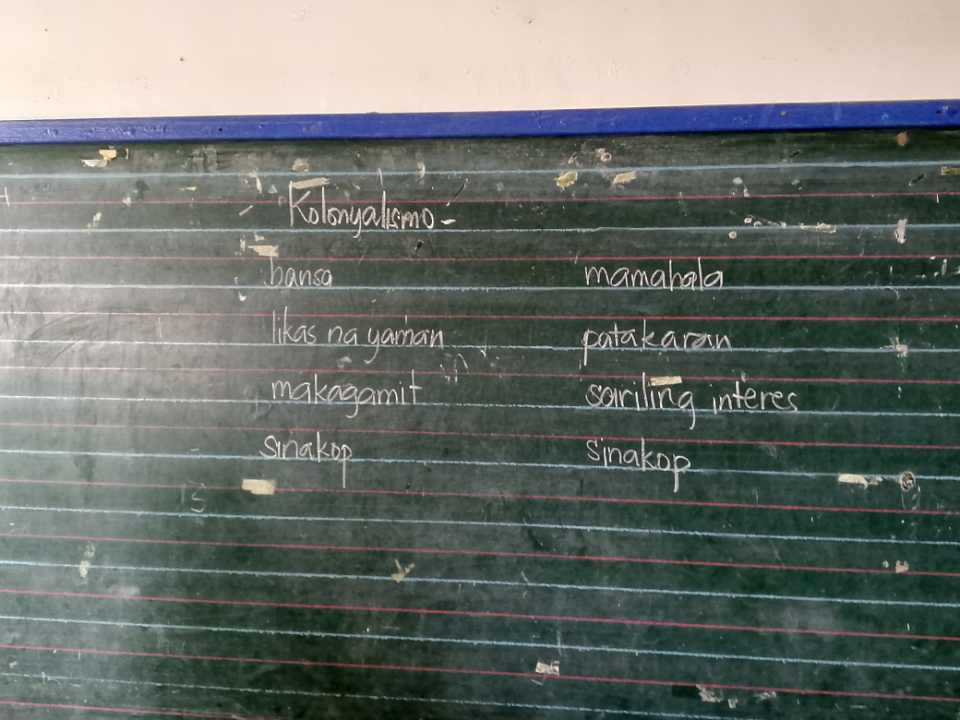 Kolonyalismo -
bansa mamahala
likas na yaman patakaran
makagamit sariling interes
sinakop sinakop